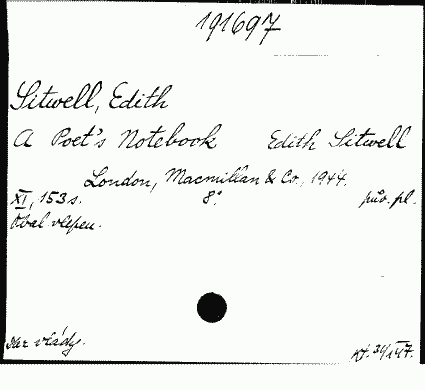 191697
Sitwell, Edith
A Poet's Notebook Edith Sitwell
London, Macmillan & Co., 1944.
XI, 153 s. 8° pův. pl.
Obal vlepen.
Dar vlády.